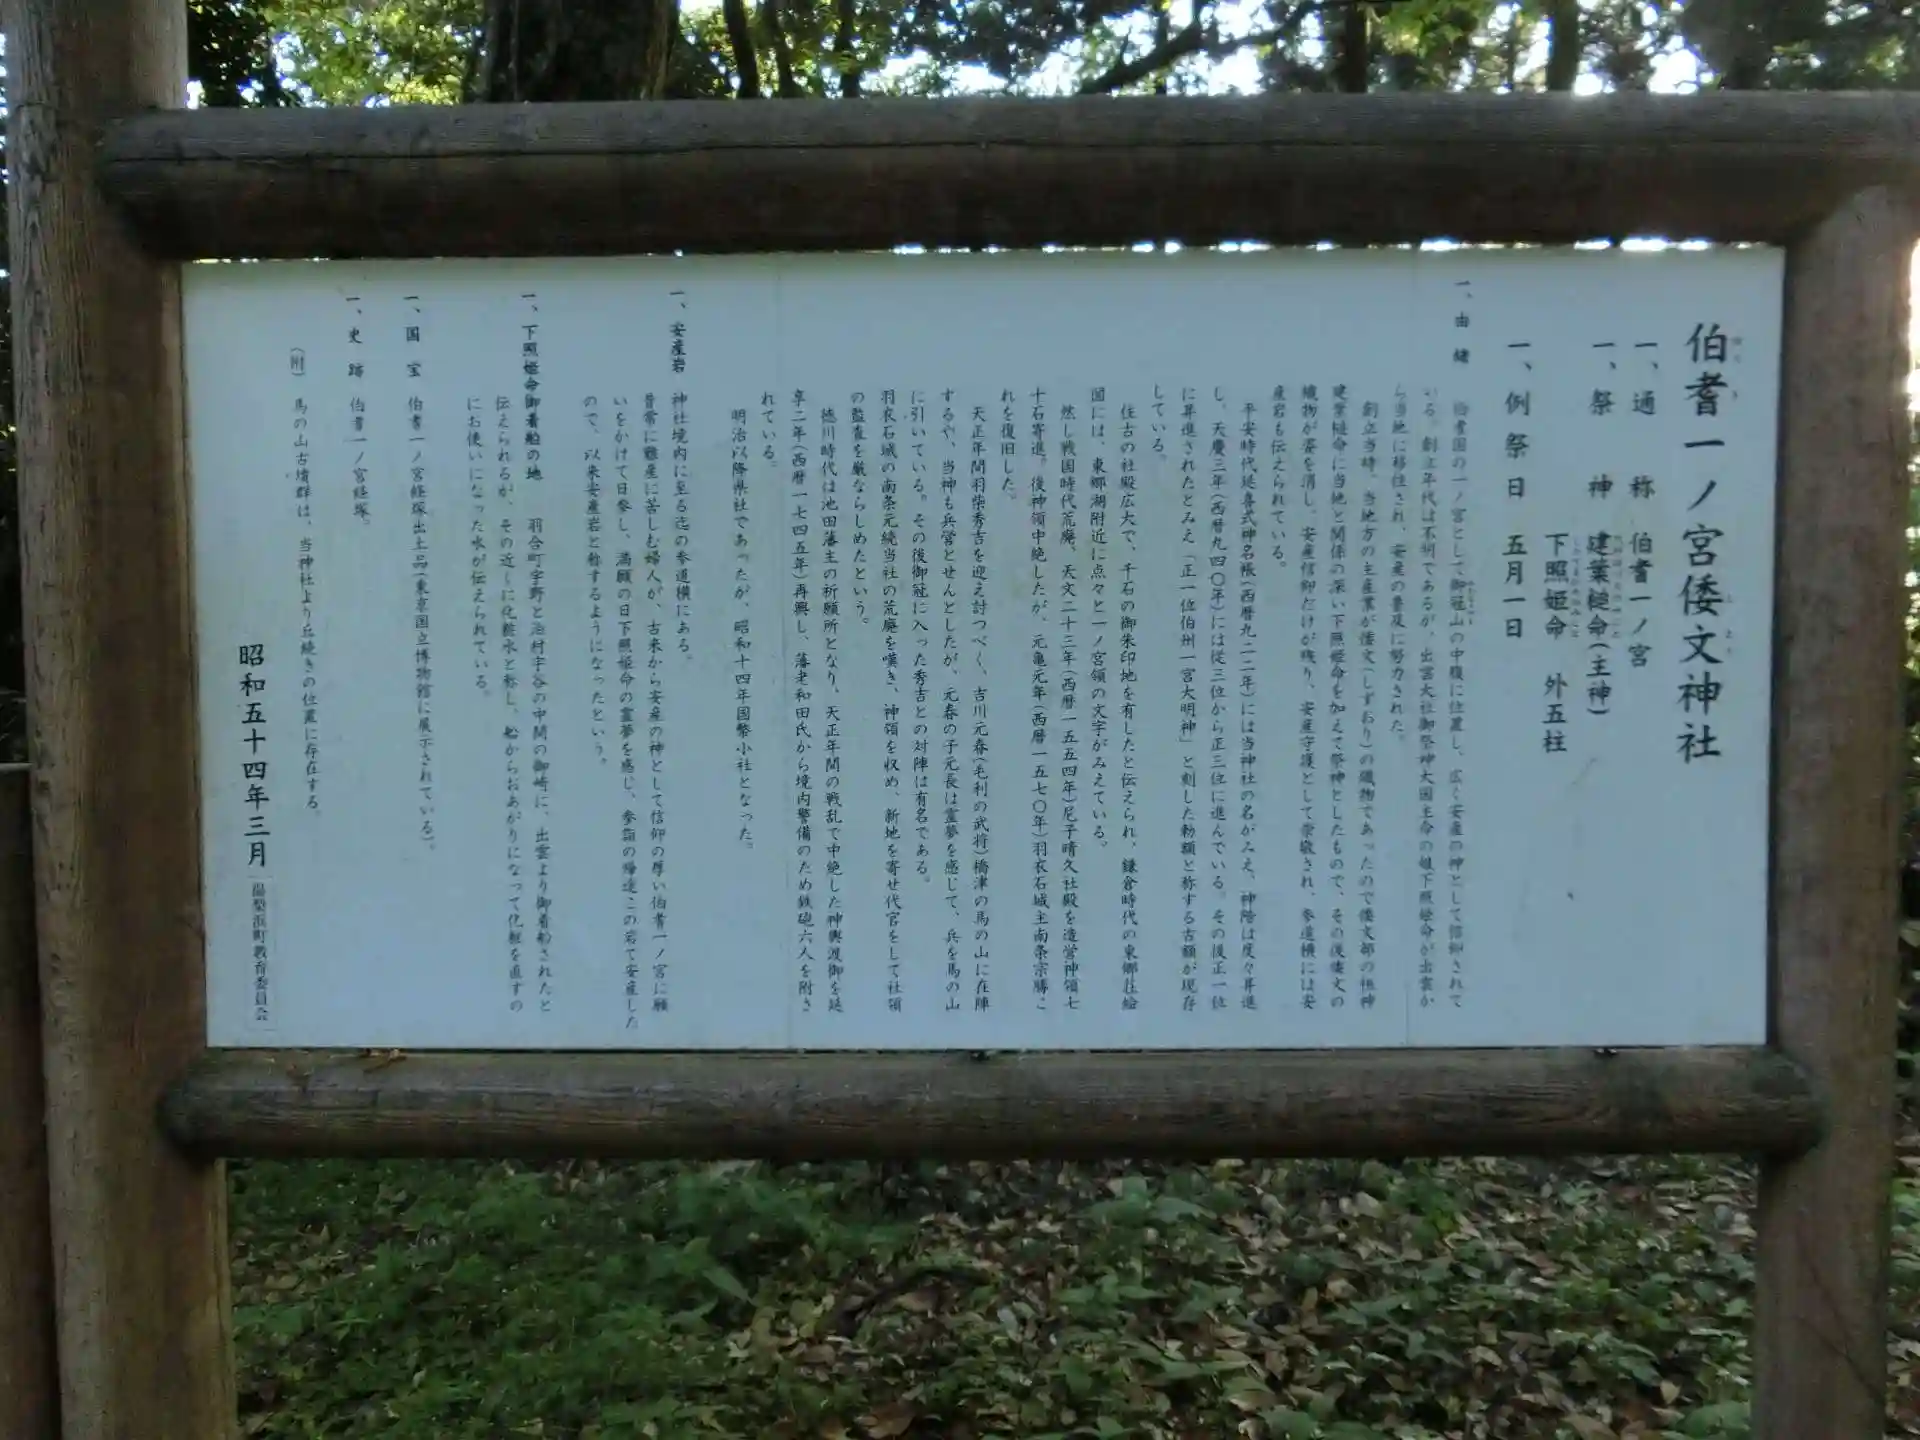 伯耆一ノ宮倭文神社
一、通　称　伯耆一ノ宮
一、祭　神　建葉槌命(主神)
下照姫命　外五柱
一、例祭日　五月一日
一、由　緒
伯耆国の一ノ宮として御冠山の中腹に位置し、広く安産の神として信仰されて
いる。創立年代は不明であるが、出雲大社御祭神大国主命の娘下照姫命が出雲か
ら当地に移住され、安産の普及に努力された。
創立当時、当地方の主産業が倭文(しずおり)の織物であったので倭文部の祖神
建葉槌命に当地と関係の深い下照姫命を加えて祭神としたもので、その後倭文の
織物が姿を消し、安産信仰だけが残り、安産守護として崇敬され、参道横には安
産岩も伝えられている。
平安時代延喜式神名帳(西暦九二二年)には当神社の名がみえ、神階は度々昇進
し、天慶三年(西暦九四〇年)には従三位から正三位に進んでいる。その後正一位
に昇進されたとみえ「正一位伯州一宮大明神」と刻した勅額と称する古額が現存
している。
往古の社殿広大で、千石の御朱印地を有したと伝えられ、鎌倉時代の東郷荘絵
図には、東郷湖附近に点々と一ノ宮領の文字がみえている。
然し戦国時代荒廃、天文二十三年(西暦一五五四年)尼子晴久社殿を造営神領七
十石寄進。後神領中絶したが、元亀元年(西暦一五七〇年)羽衣石城主南条宗勝こ
れを復旧した。
天正年間羽柴秀吉を迎え討つべく、吉川元春(毛利の武将)橋津の馬の山に在陣
するや、当神も兵営とせんとしたが、元春の子元長は霊夢を感じて、兵を馬の山
に引いている。その後御冠に入った秀吉との対陣は有名である。
羽衣石城の南条元続当社の荒廃を嘆き、神領を収め、新地を寄せ代官をして社領
の監査を厳ならしめたという。
徳川時代は池田藩主の祈願所となり、天正年間の戦乱で中絶した神輿渡御を延
享二年(西暦一七四五年)再興し、藩老和田氏から境内警備のため鉄砲六人を附さ
れている。
明治以降県社であったが、昭和十四年国幣小社となった。
一、安産岩　神社境内に至る迄の参道横にある。
昔常に難産に苦しむ婦人が、古来から安産の神として信仰の厚い伯耆一ノ宮に願
いをかけて日参し、満願の日下照姫命の霊夢を感じ、参詣の帰途この岩で安産した
ので、以来安産岩と称するようになったという。
一、下照姫命御着船の地　羽合町宇野と泊村宇谷の中間の御崎に、出雲より御着船されたと
伝えられるが、その近しに化粧水と称し、船からおあがりになって化粧を直すの
にお使いになった水が伝えられている。
一、国　宝　伯耆一ノ宮経塚出土品(東京国立博物館に展示されている)。
一、史　跡　伯耆一ノ宮経塚。
(附)　馬の山古墳群は、当神社より丘続きの位置に存在する。
昭和五十四年三月
湯梨浜町教育委員会